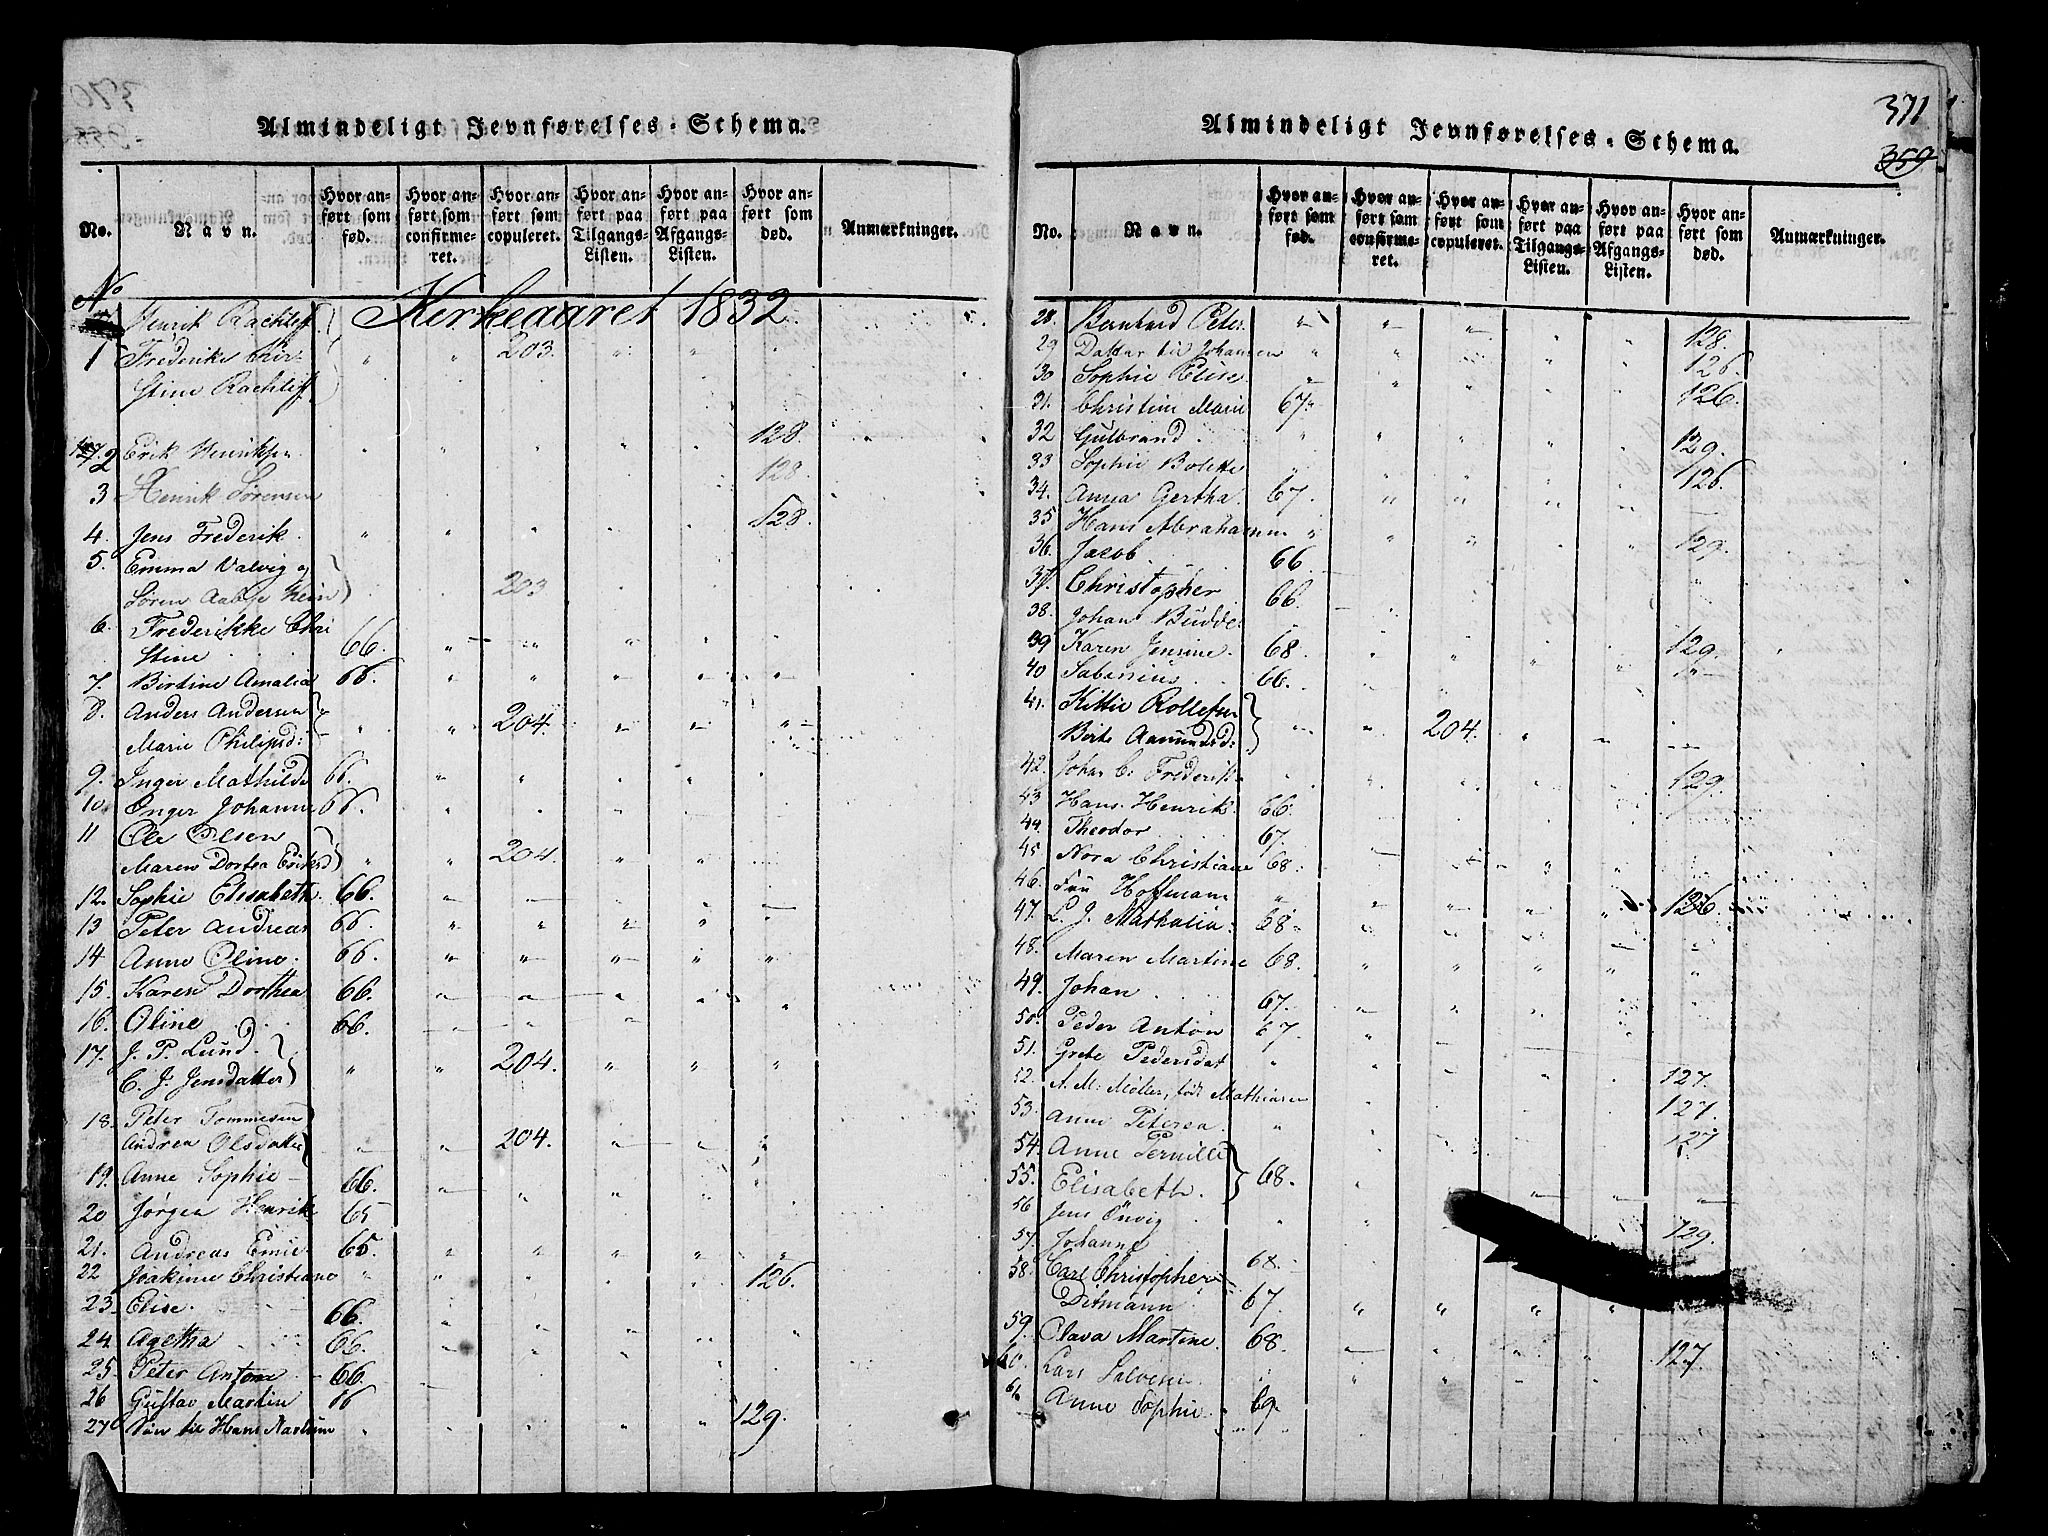 Almindeligt Jevnførelses-Schema.
No. Navn. Hvor anført som fød. Hvor anført som confirmeret. Hvor anført som copuleret. Hvor anført paa Tilgangs-Listen. Hvor anført paa Afgangs-Listen. Hvor anført som død. Anmærkninger.
No Kirkeaaret 1832
Henrik Rachløff
1 Frederike Chir- " " 203. " "
stine Rachløff
2 Erik Henriksen 128.
3 Henrik Sørensen 128.
4. Jens Frederik. 128.
5. Emma Valvig og
Søren Aabye Hein 203
6. Frederikke Chri
stine 66.
7. Birtine Amalia 66.
8. Anders Andersen
Marie Philipsd: 204.
9. Inger Mathilde 66.
10. Inger Johanne 66.
11 Ole Olsen
Maren Dortea Eriksd 204.
12. Sophie Elisabeth. 66.
13 Peter Andreas 66.
14 Anne Oline. 66.
15. Karen Dorthea 66.
16. Oline 66.
17. J. P. Lund.
C. J. Jensdatter 204.
18. Peter Tommesen
Andrea Olsdatter 204.
19. Anne Sophie 66.
20 Jørgen Henrik 65
21. Andreas Emil. 65.
22 Joakime Christiane 126.
23. Elise. 66.
24. Agetha 66.
25. Peter Anton 66.
26 Gustav Martin 66
27 Søn til Hans 129.
371
359
Almindeligt Jevnførelses-Schema.
No. Navn. Hvor anført som fød. Hvor anført som confirmeret. Hvor anført som copuleret. Hvor anført paa Tilgangs-Listen. Hvor anført paa Afgangs-Listen. Hvor anført som død. Anmærkninger.
28. Bernhard Peter 128.
29 Datter til Johansen 126.
30 Sophie Elise. 126.
31. Christine Marie 67.
32 Gulbrand. 129.
33 Sophie Bolette 126.
34. Anna Gertha 67.
35 Hans Abrahamm 129.
36. Jacob 66.
37. Christopher 66.
38. Johan Budde. 129.
39 Karen Jensine. 68.
40 Sabinius 66.
41. Kittil Rollefsen
Birte Aamundsd: 204.
42. Johan C. Frederik 129.
43 Hans Henrik. 66.
44. Theodor 67.
45 Nora Christiane 68.
46. Fru Hoffmann 126.
47. L. J. Mathalia. 68.
48. Maren Martine 68.
49. Johan 67.
50. Peder Anton 67.
51. Grete Pedersdat 127.
52. A. M. Møller, født Mathiasen 127.
53. Anne Peterea 127
54. Anne Pernille
55. Elisabeth. 68.
56 Jens 129.
57. Johanne 68.
58. Carl Christopher
Ditmann 67.
59. Olava Martine. 68
60. Lars Salvesen 127.
61. Anne Sophie 69.